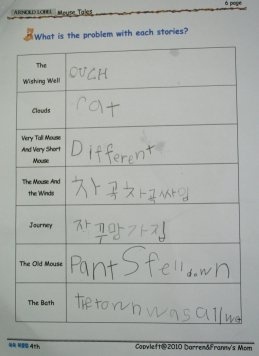 ARNOLD LOBEL Mouse Tales
6 page
What is the problem with each stories?
The
Wishing Well
OUCH
Clouds
cat
Very Tall Mouse
And Very Short
Mouse
Different
The Mouse And
the Winds
Journey
자꾸망가짐
The Old Mouse
Pants fell down
The Bath
the town was all wet
4th
Copyleft@2010 Darren&Franny's Mom